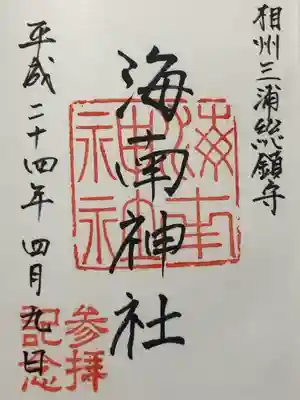 相州三浦総鎮守
海南神社
海南神社
平成二十四年四月九日
参拝
記念